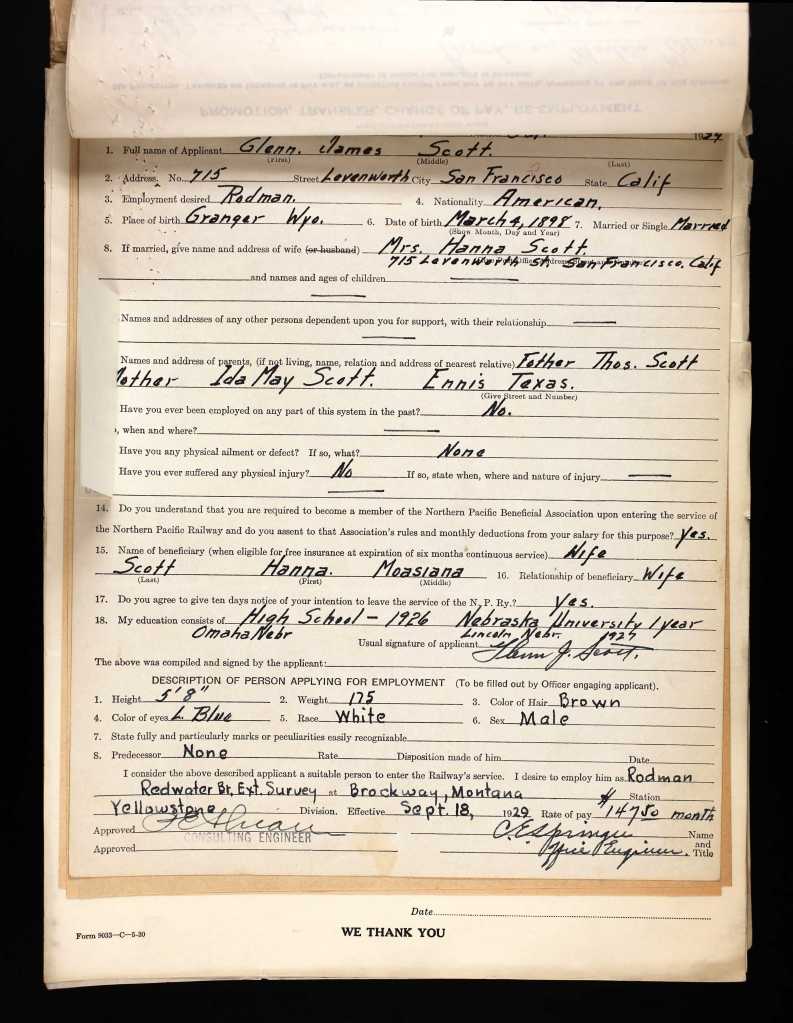 PROMOTION, TRANSFER, CHANGE OF PAY, RE-EMPLOYMENT
1929
1. Full name of Applicant Glenn. James Scott.
(First) (Middle) (Last)
2. Address. No. 715 Street Levenworth City San Francisco State Calif
3. Employment desired Rodman. 4. Nationality American.
5. Place of birth Granger Wyo. 6. Date of birth March 4, 1898 7. Married or Single Married
(Show Month, Day and Year)
8. If married, give name and address of wife (or husband) Mrs. Hanna Scott.
715 Levenworth St. San Francisco. Calif
and names and ages of children
Names and addresses of any other persons dependent upon you for support, with their relationship
Names and address of parents, (if not living, name, relation and address of nearest relative) Father Thos. Scott
Mother Ida May Scott. Ennis Texas.
(Give Street and Number)
Have you ever been employed on any part of this system in the past? No.
, when and where?
Have you any physical ailment or defect? If so, what? None
Have you ever suffered any physical injury? No If so, state when, where and nature of injury
14. Do you understand that you are required to become a member of the Northern Pacific Beneficial Association upon entering the service of
the Northern Pacific Railway and do you assent to that Association's rules and monthly deductions from your salary for this purpose? Yes.
15. Name of beneficiary (when eligible for free insurance at expiration of six months continuous service) Wife
Scott Hanna. Moasiana 16. Relationship of beneficiary Wife
(Last) (First) (Middle)
17. Do you agree to give ten days notice of your intention to leave the service of the N. P. Ry.? Yes.
18. My education consists of High School - 1926 Nebraska University 1 year
Omaha Nebr Lincoln, Nebr. 1927
Usual signature of applicant Glenn J. Scott.
The above was compiled and signed by the applicant:
DESCRIPTION OF PERSON APPLYING FOR EMPLOYMENT (To be filled out by Officer engaging applicant).
1. Height 5' 8" 2. Weight 175 3. Color of Hair Brown
4. Color of eyes L. Blue 5. Race White 6. Sex Male
7. State fully and particularly marks or peculiarities easily recognizable
8. Predecessor None Rate Disposition made of him Date
I consider the above described applicant a suitable person to enter the Railway's service. I desire to employ him as Rodman
Redwater Br, Ext. Survey at Brockway, Montana Station
Yellowstone Division. Effective Sept. 18, 1929 Rate of pay $147.50 month
Approved C.E. Springer Name
CONSULTING ENGINEER and
Approved Office Engineer. Title
Date
Form 9033—C—5-30 WE THANK YOU